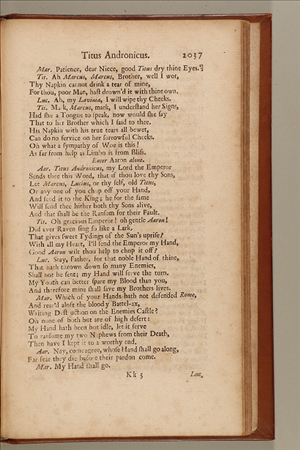 Titus Andronicus. 2037
Mar. Patience, dear Niece, good Titus dry thine Eyes.
Tit. Ah Marcus, Marcus, Brother, well I wot,
Thy Napkin cannot drink a tear of mine,
For thou, poor Man, hast drown'd it with thine own.
Luc. Ah, my Lavinia, I will wipe thy Cheeks.
Tit. Mark, Marcus, mark, I understand her Signs,
Had she a Tongue to speak, now would she say
That to her Brother which I said to thee.
His Napkin with his true tears all bewet,
Can do no service on her sorrowful Cheeks.
Oh what a sympathy of Woe is this!
As far from help as Limbo is from Bliss.
Enter Aaron alone.
Aar. Titus Andronicus, my Lord the Emperor
Sends thee this Word, that if thou love thy Sons,
Let Marcus, Lucius, or thy self, old Titus,
Or any one of you chop off your Hand,
And send it to the King; he for the same
Will send thee hither both thy Sons alive,
And that shall be the Ransom for their Fault.
Tit. Oh gracious Emperor! oh gentle Aaron!
Did ever Raven sing so like a Lark,
That gives sweet Tydings of the Sun's uprise?
With all my Heart, I'll send the Emperor my Hand,
Good Aaron wilt thou help to chop it off?
Luc. Stay, Father, for that noble Hand of thine,
That hath thrown down so many Enemies,
Shall not be sent; my Hand will serve the turn.
My Youth can better spare my Blood than you,
And therefore mine shall save my Brothers lives.
Mar. Which of your Hands hath not defended Rome,
And rear'd aloft the bloody Battel-ax,
Writing Destruction on the Enemies Castle?
Oh none of both but are of high desert:
My Hand hath been but idle, let it serve
To ransome my two Nephews from their Death,
Then have I kept it to a worthy end.
Aar. Nay, come agree, whose Hand shall go along,
For fear they die before their pardon come.
Mar. My Hand shall go.
Kk 3 Luc,